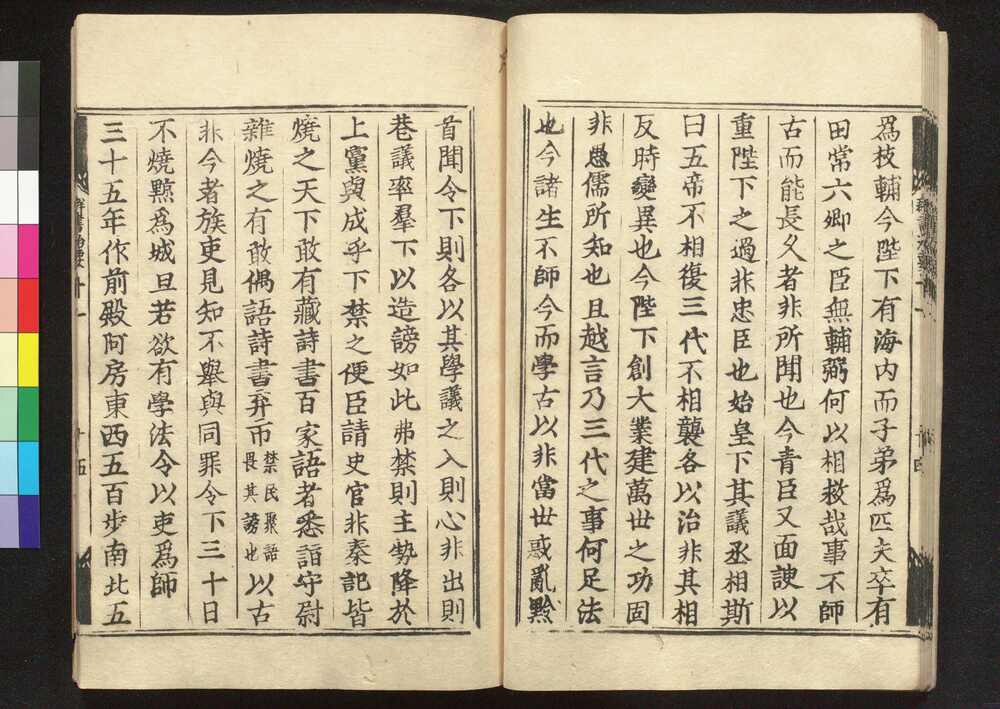 爲枝輔今陛下有海内而子弟爲匹夫卒有
田常六卿之臣無輔弼何以相救哉事不師
古而能長久者非所聞也今青臣又面諛以
重陛下之過非忠臣也始皇下其議丞相斯
曰五帝不相復三代不相襲各以治非其相
反時變異也今陛下創大業建萬世之功固
非愚儒所知也且越言乃三代之事何足法
也今諸生不師今而學古以非當世惑亂黔
首聞令下則各以其學議之入則心非出則
巷議率羣下以造謗如此弗禁則主勢降於
上黨與成乎下禁之便臣請史官非秦記皆
燒之天下敢有藏詩書百家語者悉詣守尉
雜燒之有敢偶語詩書弃市禁民聚語畏其謗也以古
非今者族吏見知不舉與同罪令下三十日
不燒黥爲城旦若欲有學法令以吏爲師
三十五年作前殿阿房東西五百步南北五
群書治要十一
十五